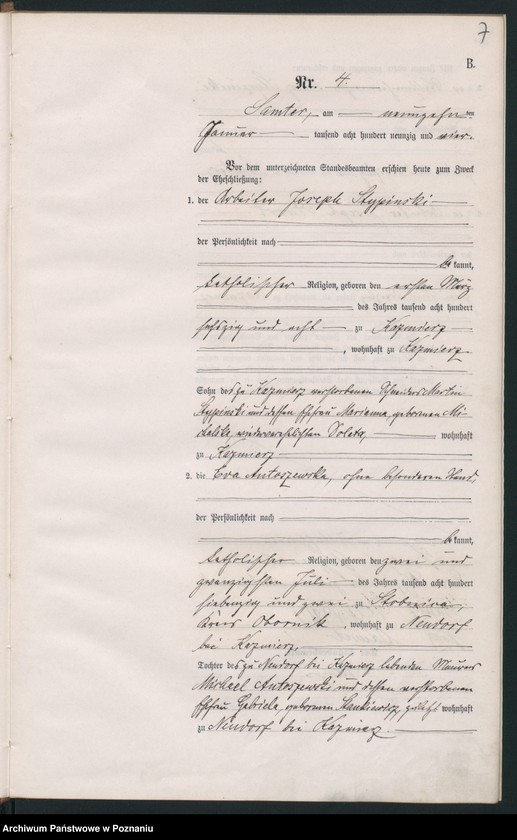 7
B.
Nr. 4.
Samter, am neunzehn ten
Januar tausend acht hundert neunzig und vier.
Vor dem unterzeichneten Standesbeamten erschien heute zum Zweck
der Eheschließung:
1. der Arbeiter Joseph Stypinski
der Persönlichkeit nach
be kannt,
katholischer Religion, geboren den ersten März
des Jahres tausend acht hundert
sechzig und acht zu Kazmierz
, wohnhaft zu Kazmierz.
Sohn des zu Kazmierz verstorbenen Schneiders Martin
Stypinski und dessen Ehefrau Marianna, geborenen Mi-
chalska, wiederverehelichten Soleta, wohnhaft
zu Kazmierz
2. die Eva Antoszewska, ohne besonderen Stand,
der Persönlichkeit nach
be kannt,
katholischer Religion, geboren den zwei und
zwanzigsten Juli des Jahres tausend acht hundert
siebenzig und zwei zu
Kreis Obornik, wohnhaft zu Neudorf
bei Kazmierz,
Tochter des zu Neudorf bei Kazmierz lebenden Maurers
Michael Antoszewski und dessen verstorbenen
Ehefrau Gabriela, geborenen Stankiewicz, zuletzt wohnhaft
zu Neudorf bei Kazmierz.
Archiwum Państwowe w Poznaniu
AP Poznań / szukajwarchiwach.gov.pl